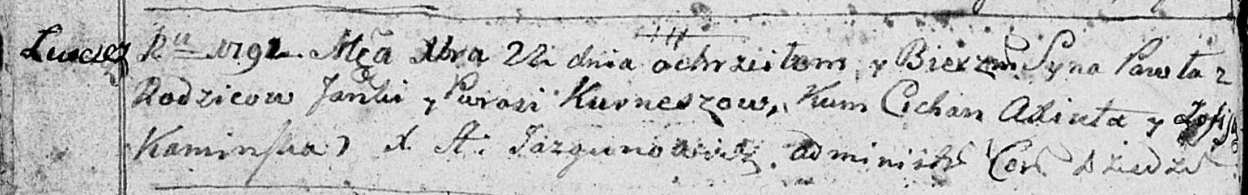 Ru 1792 Mca Xbra 22 dnia ochrzciłem y Bierzm Syna Pawła z
Rodzicow Janki y Parasi Kurneszow, Kum Cichan Axiuta y Zofija
Kaminska) X A. Jazgunowicz administr Cer